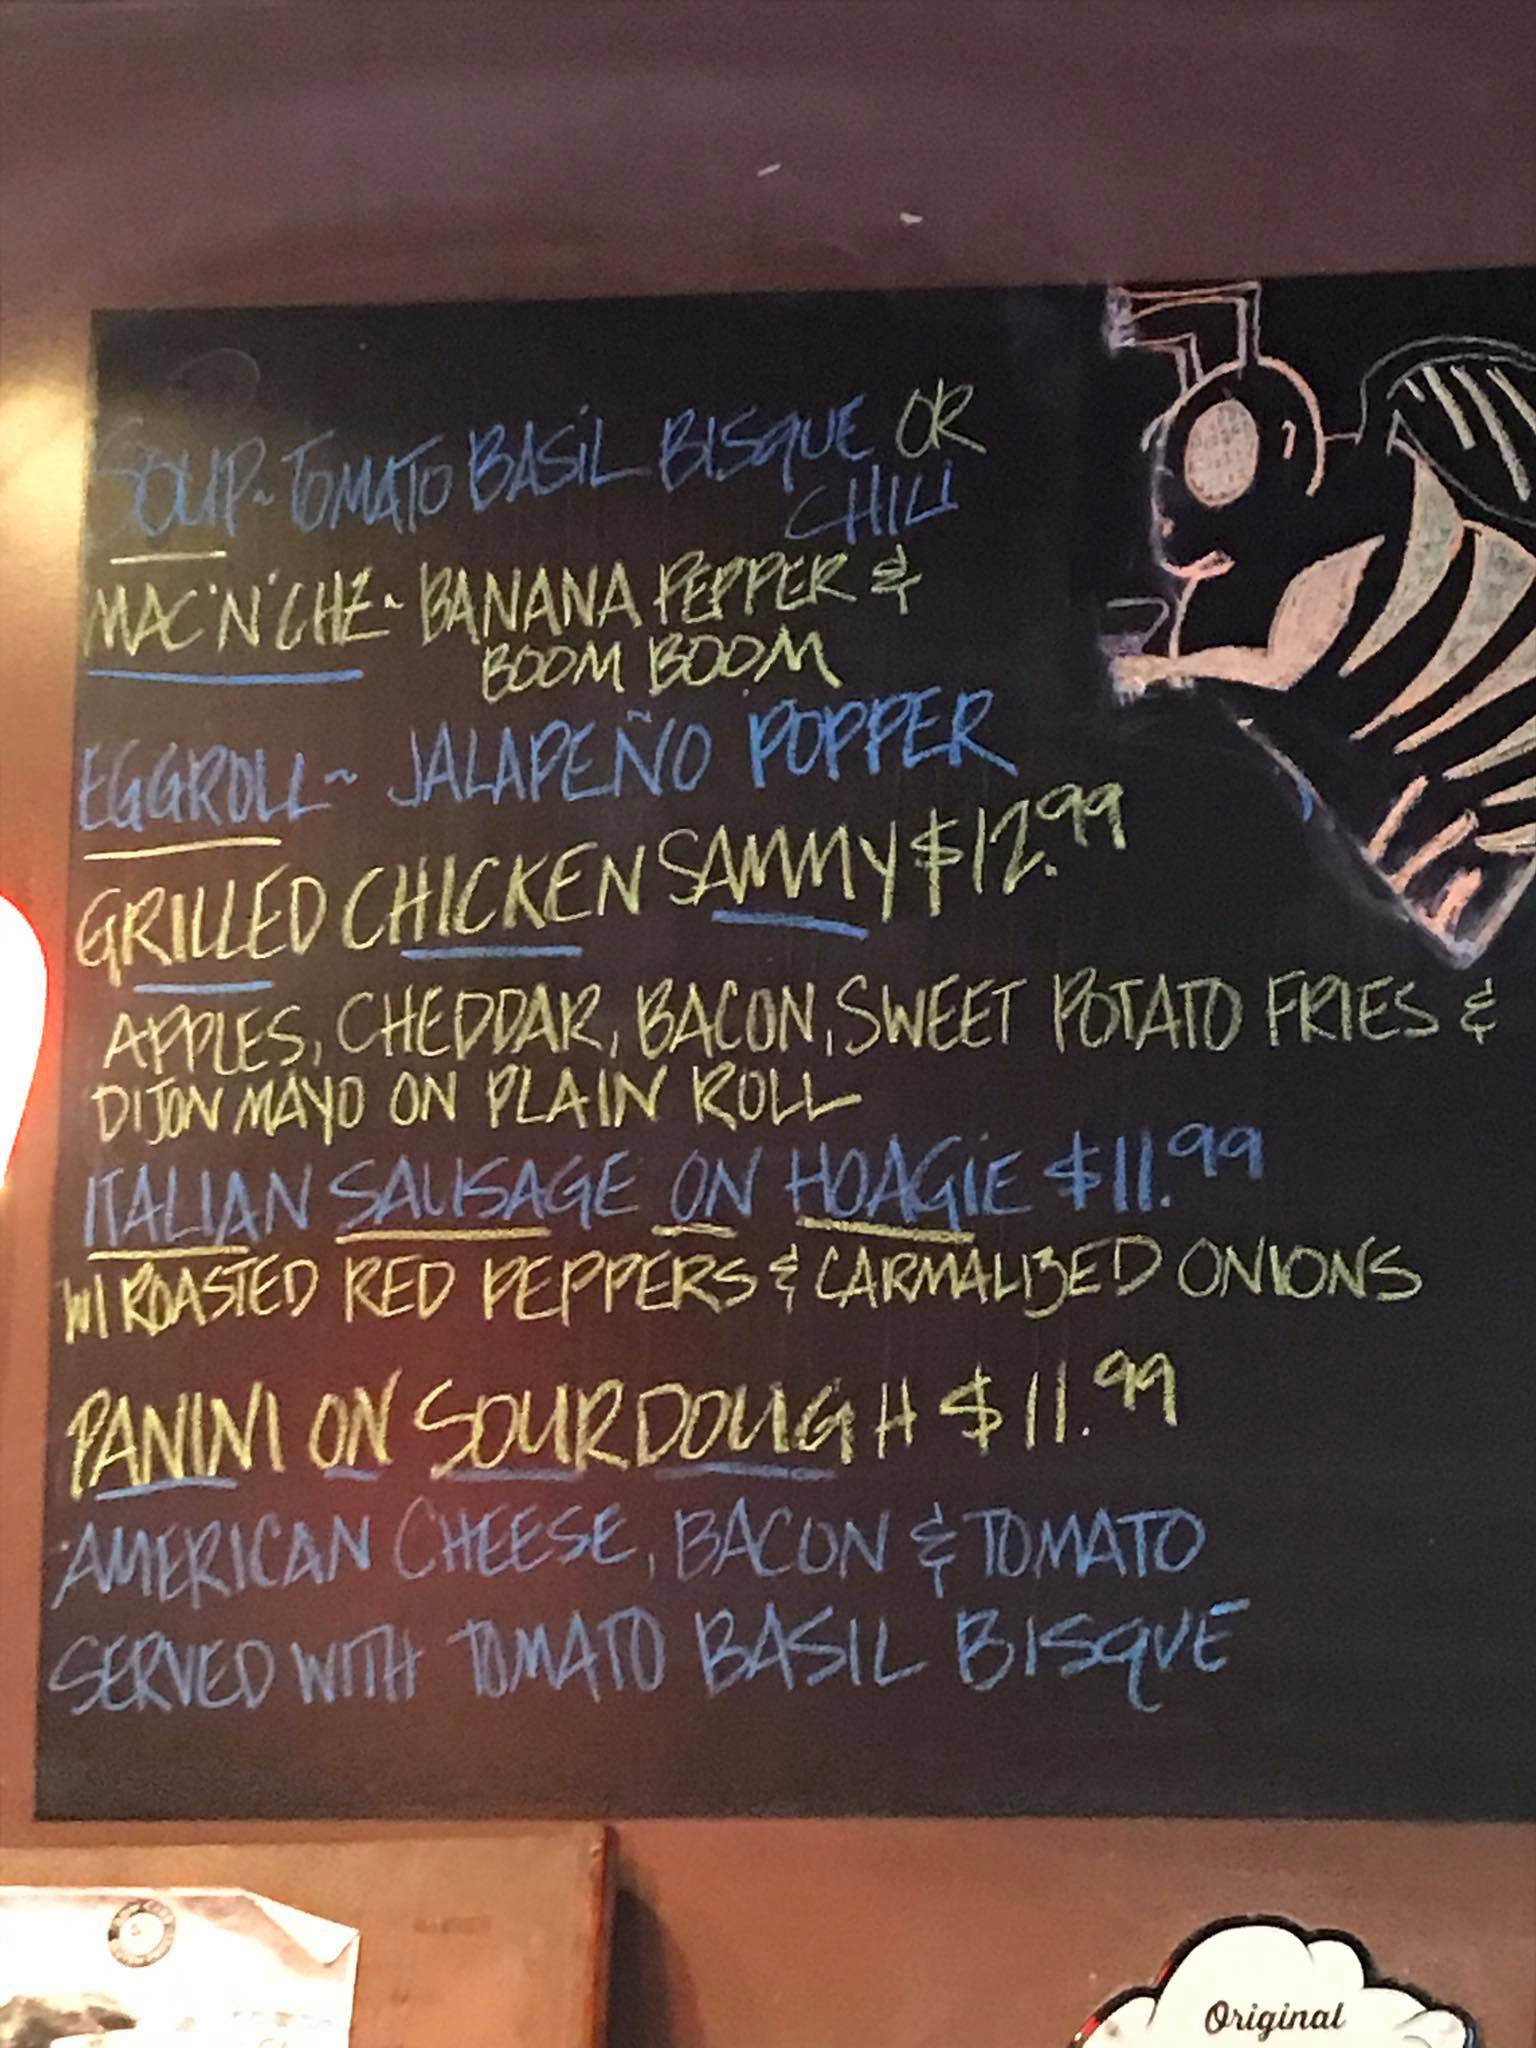 SOUP~ TOMATO BASIL BISQUE OR
CHILI
MAC 'N' CHZ~ BANANA PEPPER &
BOOM BOOM
EGGROLL~ JALAPEÑO POPPER
GRILLED CHICKEN SAMMY $12.99
APPLES, CHEDDAR, BACON, SWEET POTATO FRIES &
DIJON MAYO ON PLAIN ROLL
ITALIAN SAUSAGE ON HOAGIE $11.99
W/ ROASTED RED PEPPERS & CARMALIZED ONIONS
PANINI ON SOURDOUGH $11.99
AMERICAN CHEESE, BACON & TOMATO
SERVED WITH TOMATO BASIL BISQUE
Original